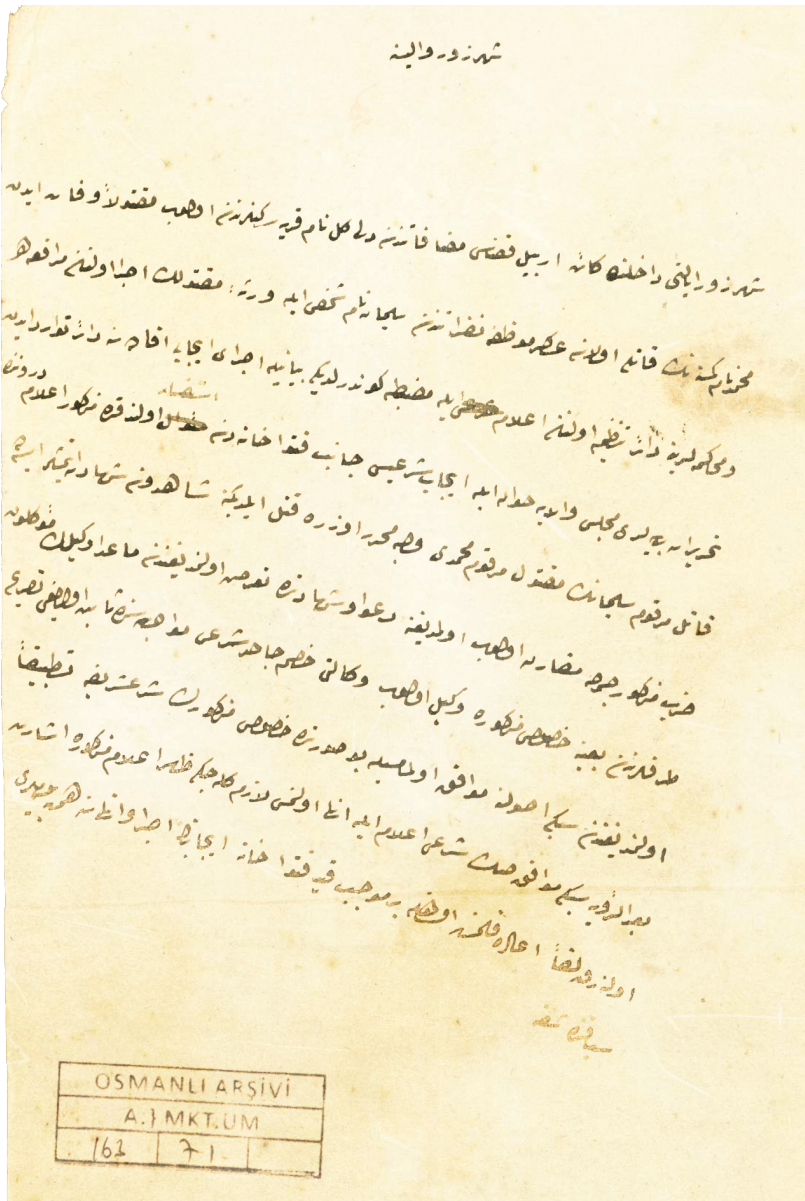 شهرزور والیسنه
شهرزور ایالتی داخلنده کائن اربیل قضاسی مضافاتندن دلی کل نام قریه سکنه‌سندن اولوب مقتولاً وفات ایدن
محمد نام کسنه‌نک قاتلی اولان عسکر موظفه نفراتندن سلیمان نام شخص ایله ورثهٔ مقتولک اجرا اولنان مرافعه
و محاکمه‌لرینه دائر تنظیم اولنان اعلام ایله مضبطه کوندرلدیکی بیانیله اجرای ایجابی افاده‌سنه دائر توارد ایدن
تحریرات مجلس والایه حواله ایله ایجاب شرعیسی جانب فتواخانه‌دن استفسار اولندقده مذکور اعلام درونندە
قاتل مرقوم سلیمانک مقتول مرقوم محمدی وجه محرر اوزره قتل ایلدیکنه شاهدون شهادت ایتمشلر ایسه ده
ضرب مذکور جرحه مقارن اولوب اولمدیغنه دعوا و شهادتده تعرض اولنمدیغندن ماعدا وکیلک موکللری
طرفلرندن بعینه خصوص مذکوره وکیل اولوب وکالتی خصم جاحد شرعی مواجهه‌سنده ثابت اولدیغی تصریح
اولنمدیغندن سبکی اصولنه موافق اولمامسیله بو صورتده خصوص مذکورک شرع شریفه تطبیقاً
بعد الرؤیه سبکی موافق صک شرعی اعلام ایله انها اولنمسی لازم کله‌جکی ظهر اعلام مذکوره اشارت
اولنه‌رق لفاً اعاده قلنمش اولمغله بر موجب قید فتواخانه ایجابنک اجرا و انهاسنه همت
OSMANLI ARŞİVİ
A.} MKT.UM
163 71